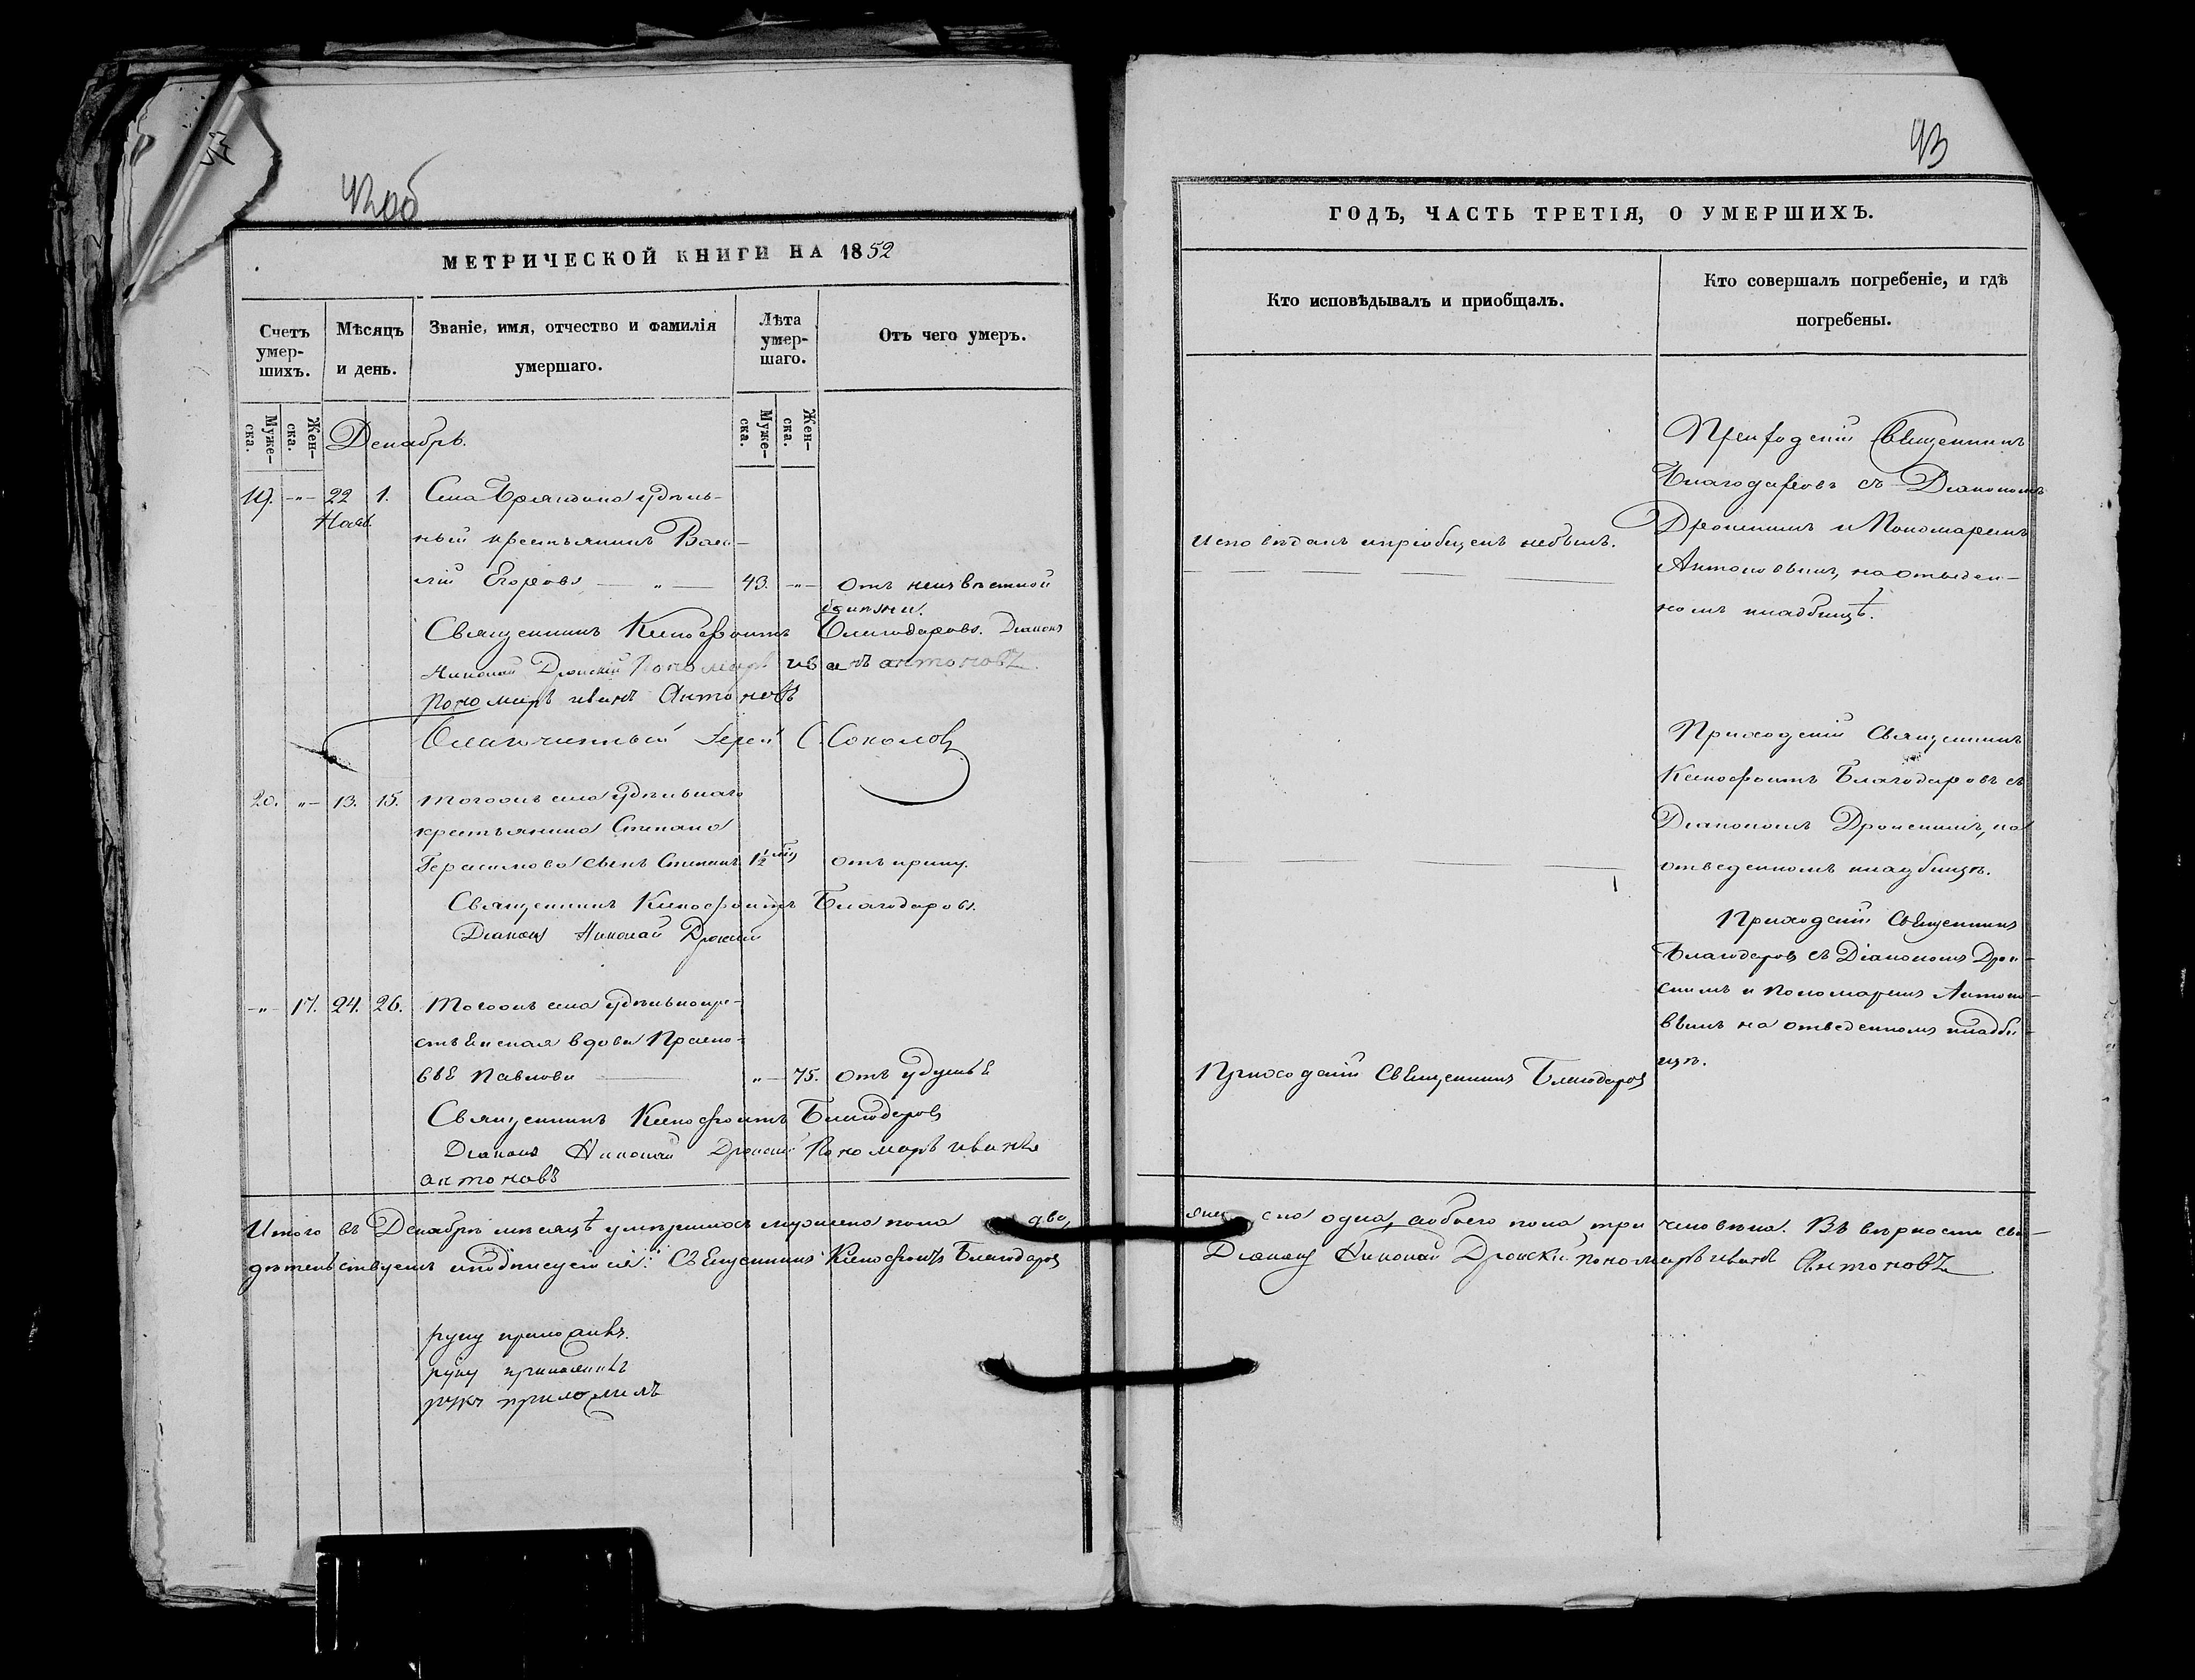 42об
МЕТРИЧЕСКОЙ КНИГИ НА 1852
Счетъ умер-шихъ.
Мѣсяцъ и день.
Званіе, имя, отчество и фамилія умершаго.
Лѣта умер-шаго.
Отъ чего умеръ.
Муже-ска.
Жен-ска.
Муже-ска.
Жен-ска.
Декабрь.
19. -"- 22 1. Села удѣль-
Нояб.
ный крестьянинъ Васи-
лій Егоровъ — " — 43. -"- Отъ неизвѣстной
болѣзни.
Священникъ Ксенофонтъ Благодаровъ. Діаконъ
Николай Дронскій Пономарь иванъ антоновъ
Пономарь иванъ Антоновъ
Благочинный Іерей С. Соколовъ
20. "- 13. 15. Тогоже села удѣльнаго
крестьянина Степана
Герасимова сынъ Степанъ 1½ отъ крику.
Священникъ Ксенофонтъ Благодаровъ.
Діаконъ Николай Дронскій
-"- 17. 24. 26. Тогоже села удѣльнокре-
стьянская вдова Праско-
вья Павлова — "- 75. отъ удушья
Священникъ Ксенофонтъ Благодаровъ
Діаконъ Николай Дронскій Пономарь иванъ
антоновъ
Итого въ Декабрѣ мѣсяцѣ умершихъ мужеска пола два,
дѣтельствуемъ и подписуемся: Священникъ Ксенофонтъ Благодаровъ
руку приложилъ.
руку приложилъ
руку приложилъ
43
ГОДЪ, ЧАСТЬ ТРЕТІЯ, О УМЕРШИХЪ.
Кто исповѣдывалъ и приобщалъ.
Кто совершалъ погребеніе, и гдѣ
погребены.
Исповѣданъ и пріобщенъ небылъ.
Приходскій Священникъ
Благодаровъ съ Діакономъ
Дронскимъ и Пономаремъ
Антоновымъ, на отведен-
номъ кладбищѣ.
Приходскій Священникъ
Ксенофонтъ Благодаровъ съ
Діакономъ Дронскимъ, на
отведенномъ кладбищѣ.
Приходскій Священникъ Благодаровъ
Приходскій Священникъ
Благодаровъ съ Діакономъ Дрон-
скимъ и Пономаремъ Антоно-
вымъ на отведенномъ кладби-
щѣ.
женска одна, а обоего пола три человѣка. Въ вѣрности сви-
Діаконъ Николай Дронскій пономарь иванъ Антоновъ